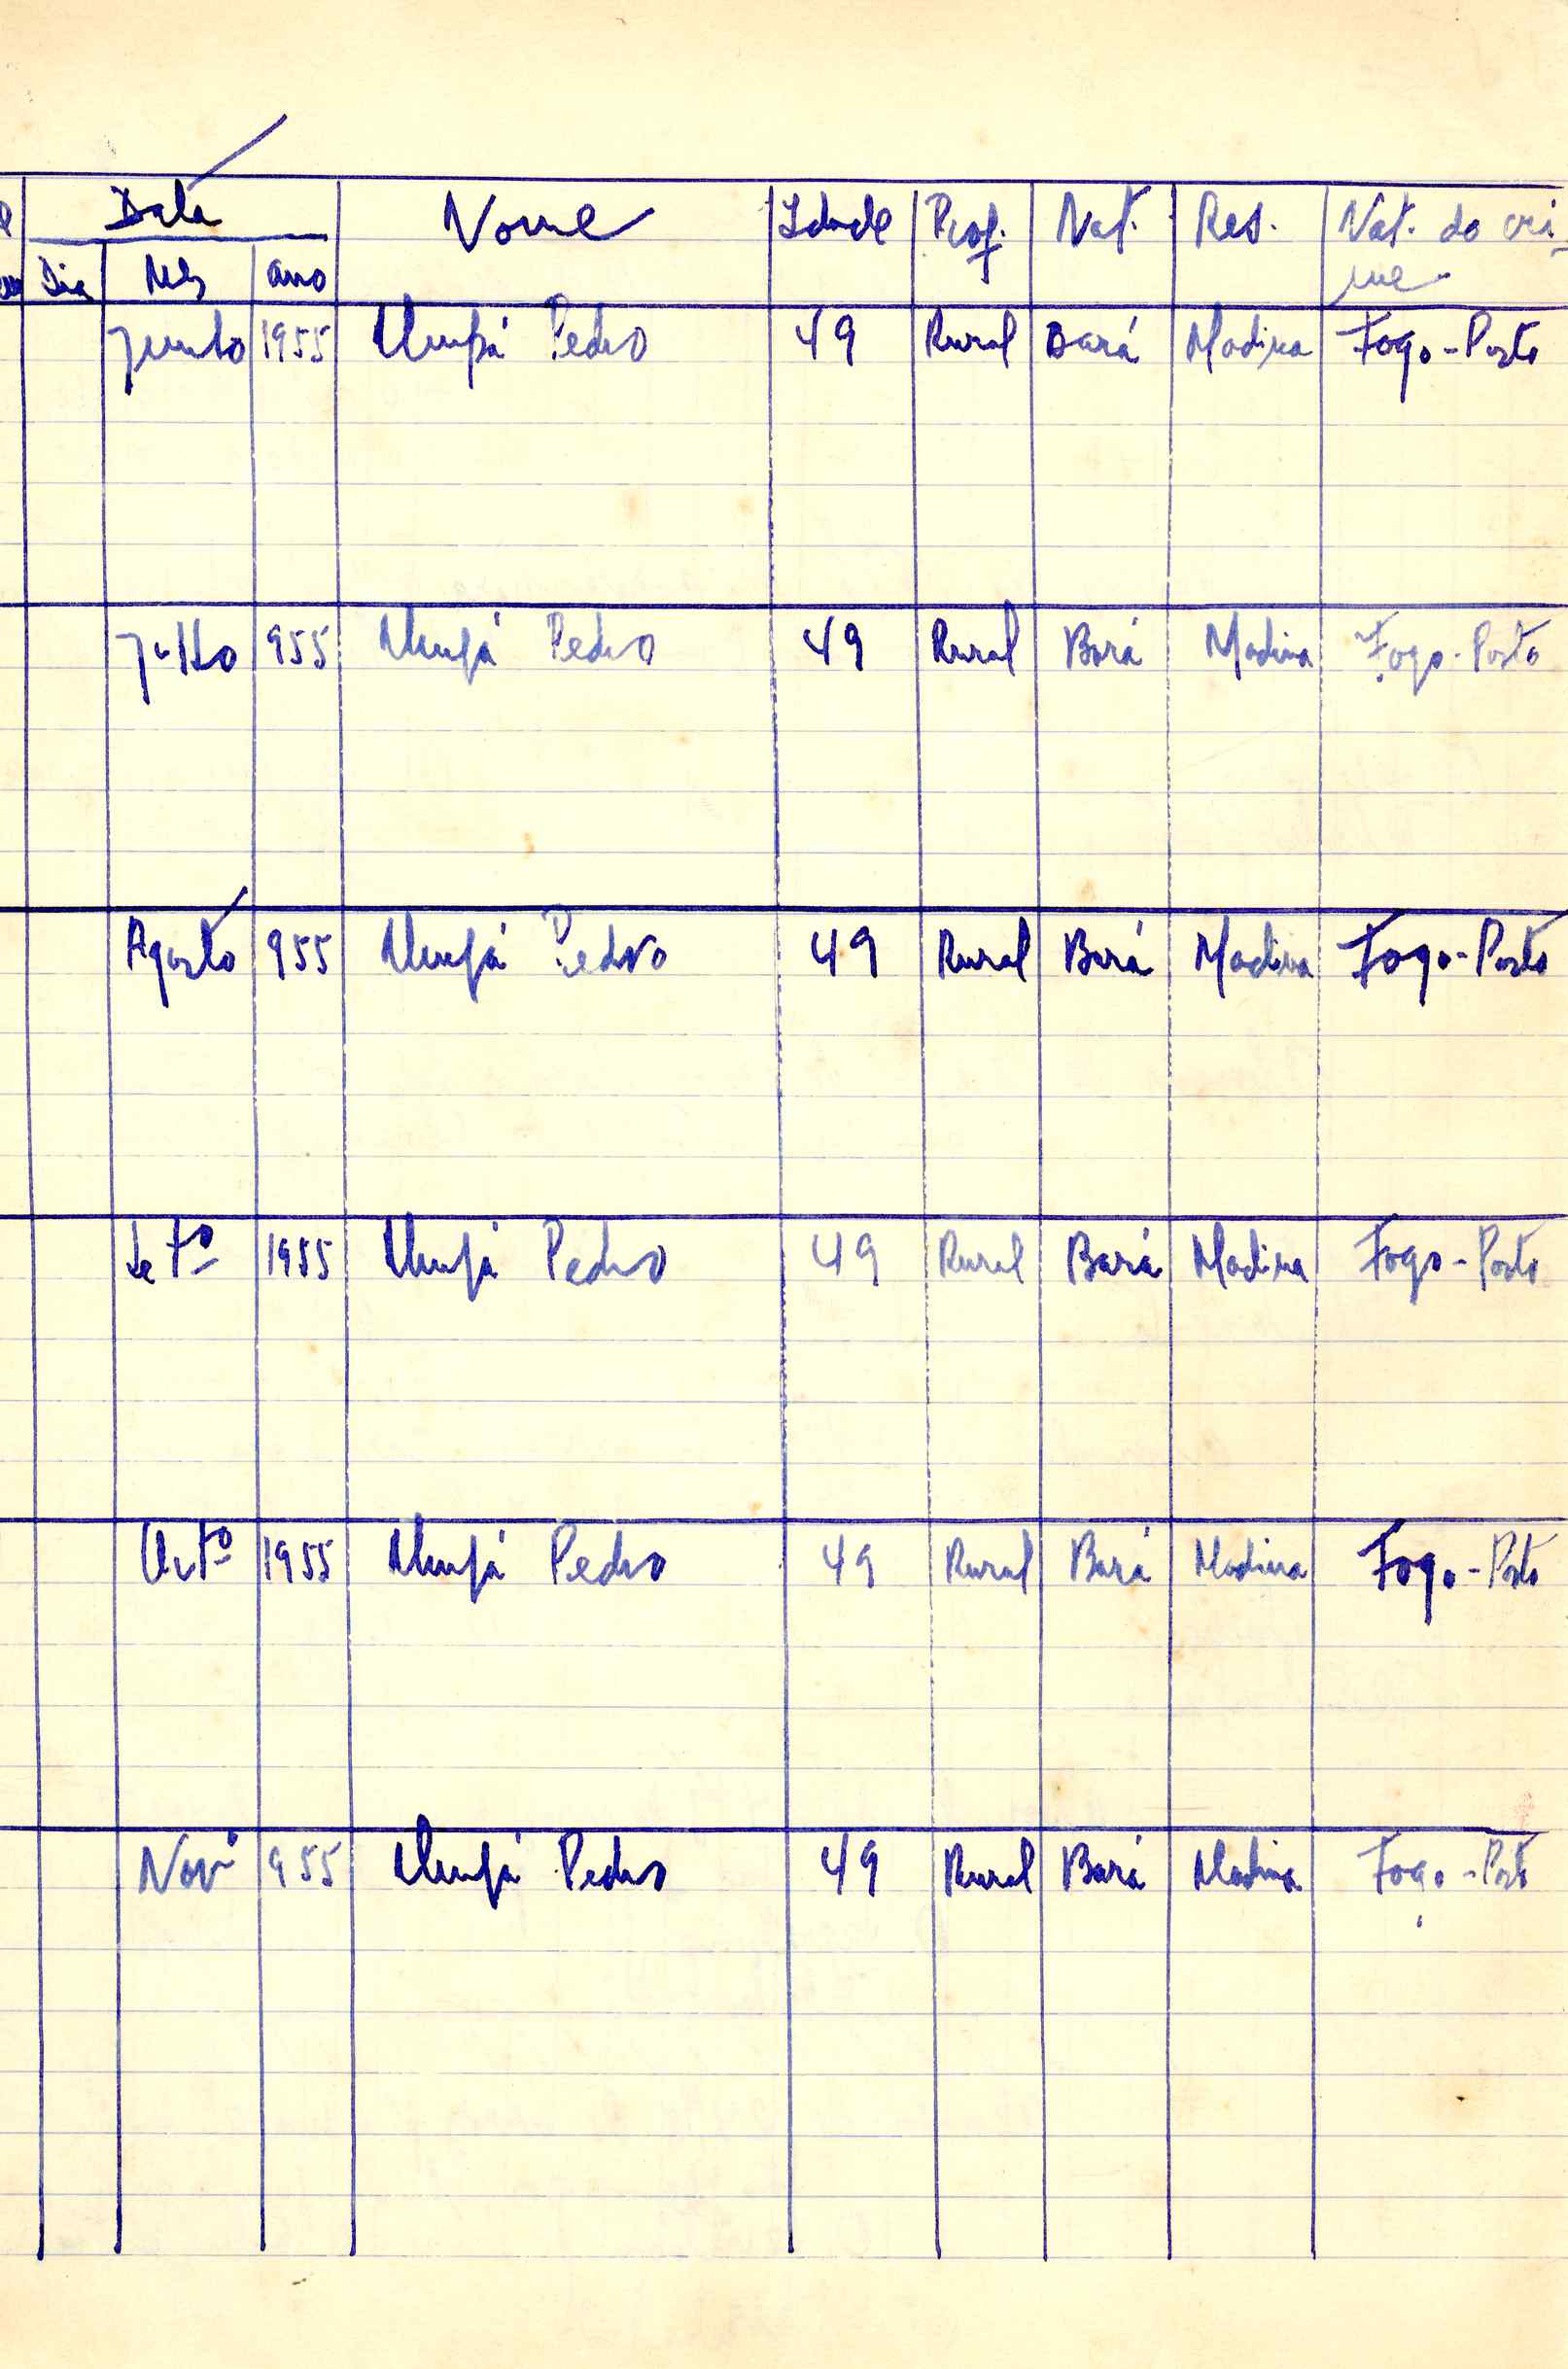 Data Nome Idade Prof. Nat. Res. Nat. do cri-
Dia Mês ano me
Junho 1955 Pedro 49 Rural Bará Madina Fogo-Posto
Julho 955 Pedro 49 Rural Bará Madina Fogo-Posto
Agosto 955 Pedro 49 Rural Bará Madina Fogo-Posto
Setº 1955 Pedro 49 Rural Bará Madina Fogo-Posto
Outº 1955 Pedro 49 Rural Bará Madina Fogo-Posto
Novº 955 Pedro 49 Rural Bará Madina Fogo-Posto